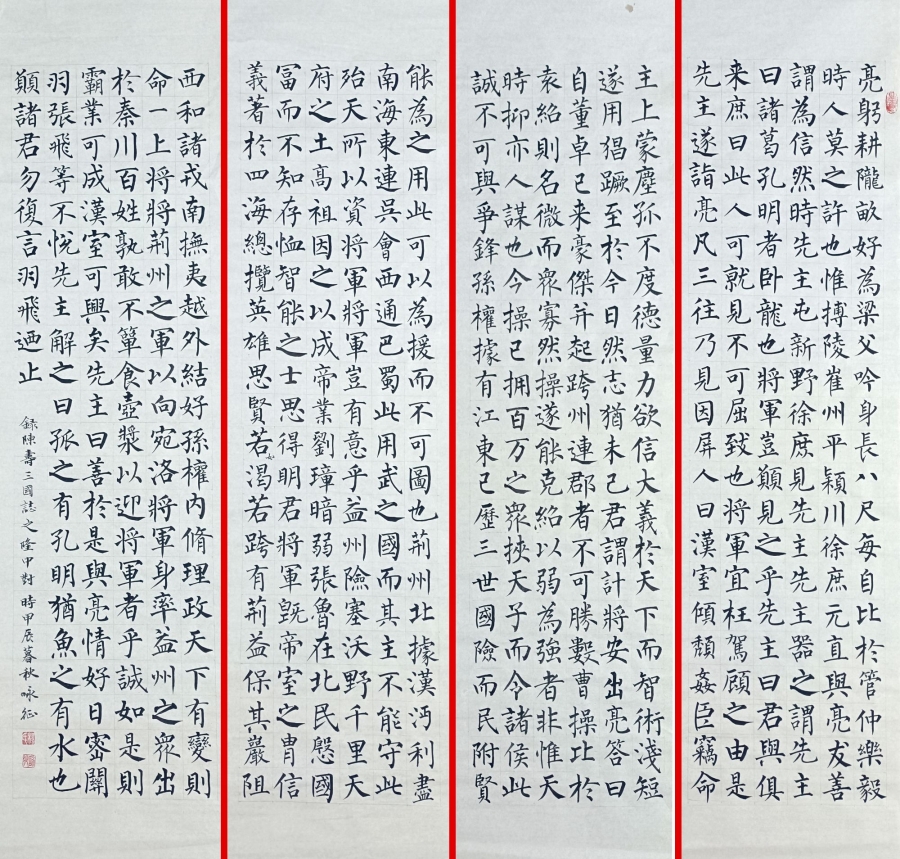 亮躬耕隴畝好為梁父吟身長八尺每自比於管仲樂毅
時人莫之許也惟搏陵崔州平穎川徐庶元直與亮友善
謂為信然時先主屯新野徐庶見先主先主器之謂先主
曰諸葛孔明者卧龍也將軍豈願見之乎先主曰君與俱
来庶曰此人可就見不可屈致也將軍宜枉駕顧之由是
先主遂詣亮凡三往乃見因屏人曰漢室傾頹姦臣竊命
主上蒙塵孤不度德量力欲信大義於天下而智術淺短
遂用猖蹶至於今日然志猶未已君謂計將安出亮答曰
自董卓已来豪傑并起跨州連郡者不可勝數曹操比於
袁紹則名微而眾寡然操遂能克紹以弱為強者非惟天
時抑亦人謀也今操已拥百万之眾挾天子而令諸侯此
誠不可與爭鋒孫權據有江東已歷三世國險而民附賢
能為之用此可以為援而不可圖也荊州北據漢沔利盡
南海東連吳會西通巴蜀此用武之國而其主不能守此
殆天所以資將軍將軍豈有意乎益州險塞沃野千里天
府之土高祖因之以成帝業劉璋暗弱張魯在北民殷國
冨而不知存恤智能之士思得明君將軍既帝室之胄信
義著於四海總攬英雄思賢若渴若跨有荊益保其巖阻
西和諸戎南撫夷越外結好孫權内脩理政天下有變則
命一上將將荊州之軍以向宛洛將軍身率益州之眾出
於秦川百姓孰敢不簞食壺漿以迎將軍者乎誠如是則
霸業可成漢室可興矣先主曰善於是與亮情好日密關
羽張飛等不悅先主解之曰孤之有孔明猶魚之有水也
願諸君勿復言羽飛迺止
錄陳壽三國誌之隆中對 時甲辰暮秋 咏征